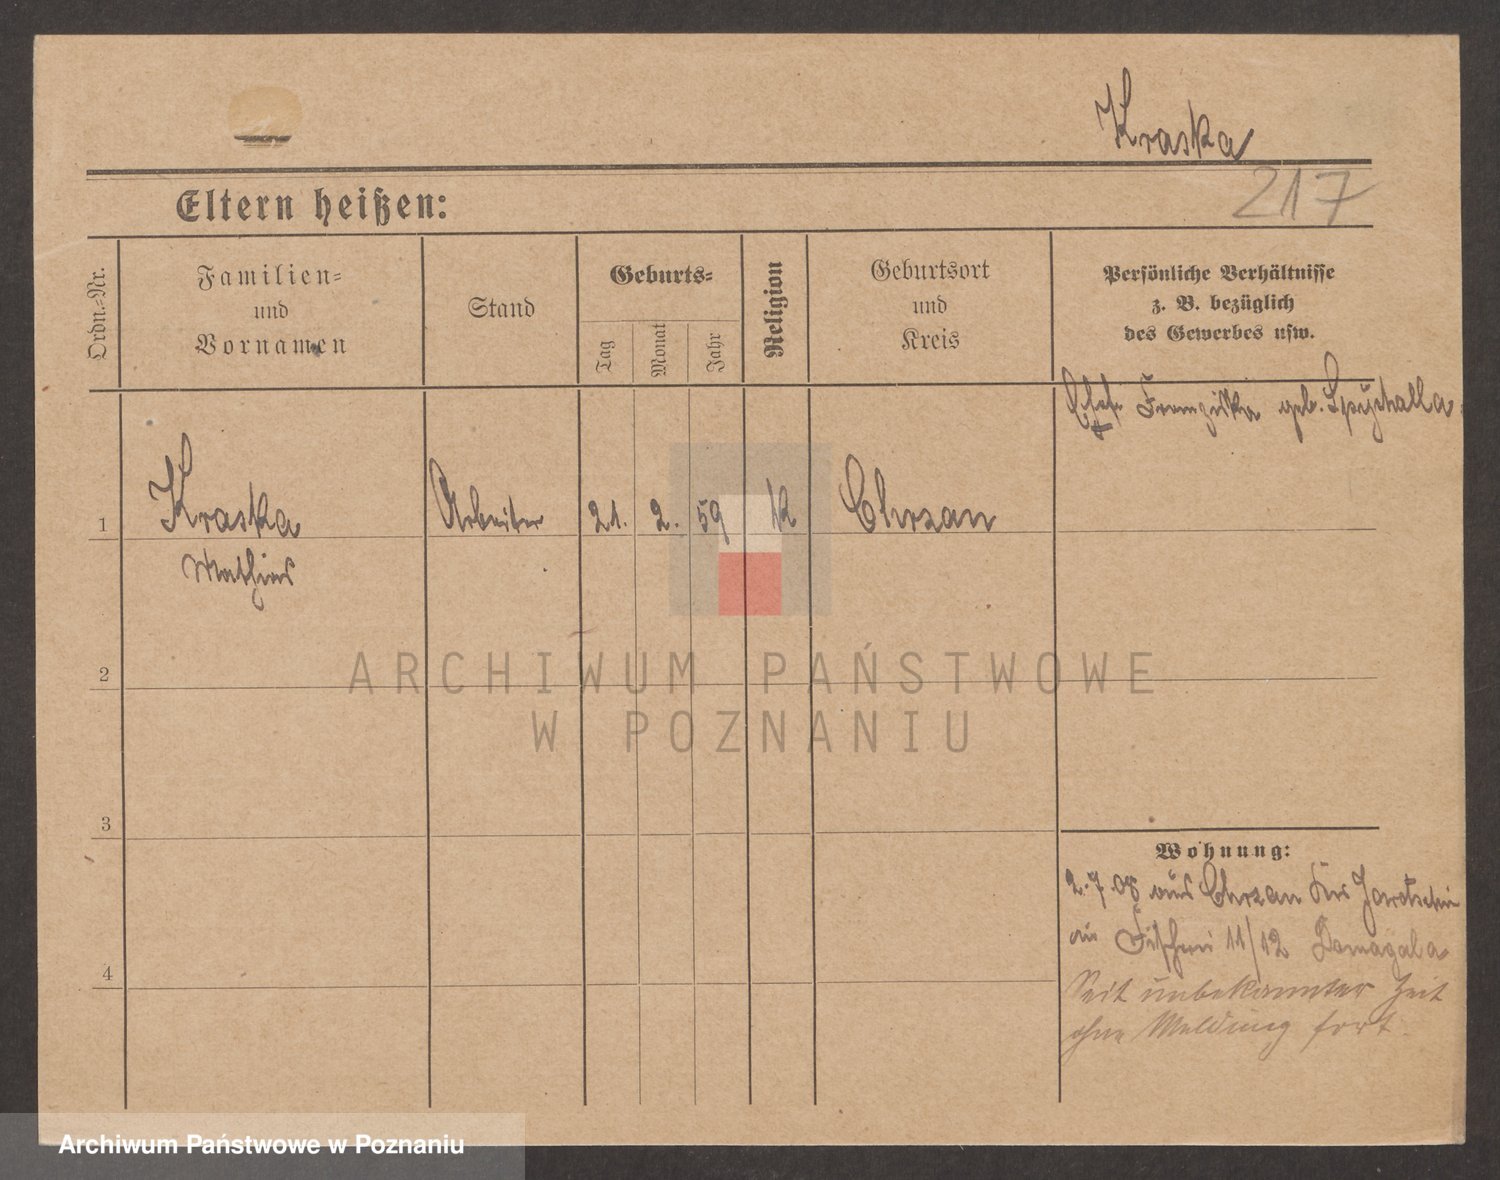 Kraska
217
Eltern heißen:
Ordn.-Nr.
Familien-
und
Vornamen
Stand
Geburts-
Tag
Monat
Jahr
Religion
Geburtsort
und
Kreis
Persönliche Verhältnisse
z. B. bezüglich
des Gewerbes usw.
Franziska geb. Spychalla
1
Kraska
Arbeiter
21.
2.
59
k
Chrzan
Mathias
2
ARCHIWUM PAŃSTWOWE
W POZNANIU
3
Wohnung:
2.7.08 aus Chrzan Krs Jarotschin
Fischerei 11/12 Domagala
4
Seit unbekannter Zeit
ohne Meldung fort.
Archiwum Państwowe w Poznaniu